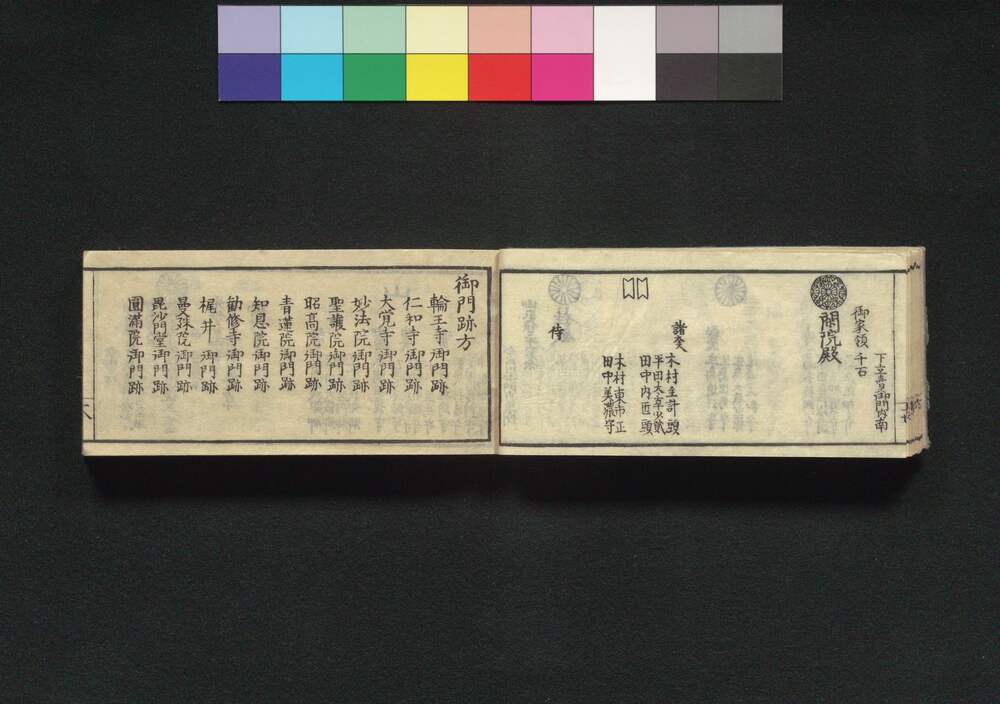 下立売御門内南
御家領 千石
閑院殿
諸大夫
木村主計頭
平田大宰少貳
田中内匠頭
侍
木村東市正
田中美濃守
御門跡方
輪王寺御門跡
仁和寺御門跡
大覚寺御門跡
妙法院御門跡
聖護院御門跡
昭高院御門跡
青蓮院御門跡
知恩院御門跡
勧修寺御門跡
梶井 御門跡
曼殊院御門跡
毘沙門堂御門跡
圓満院御門跡